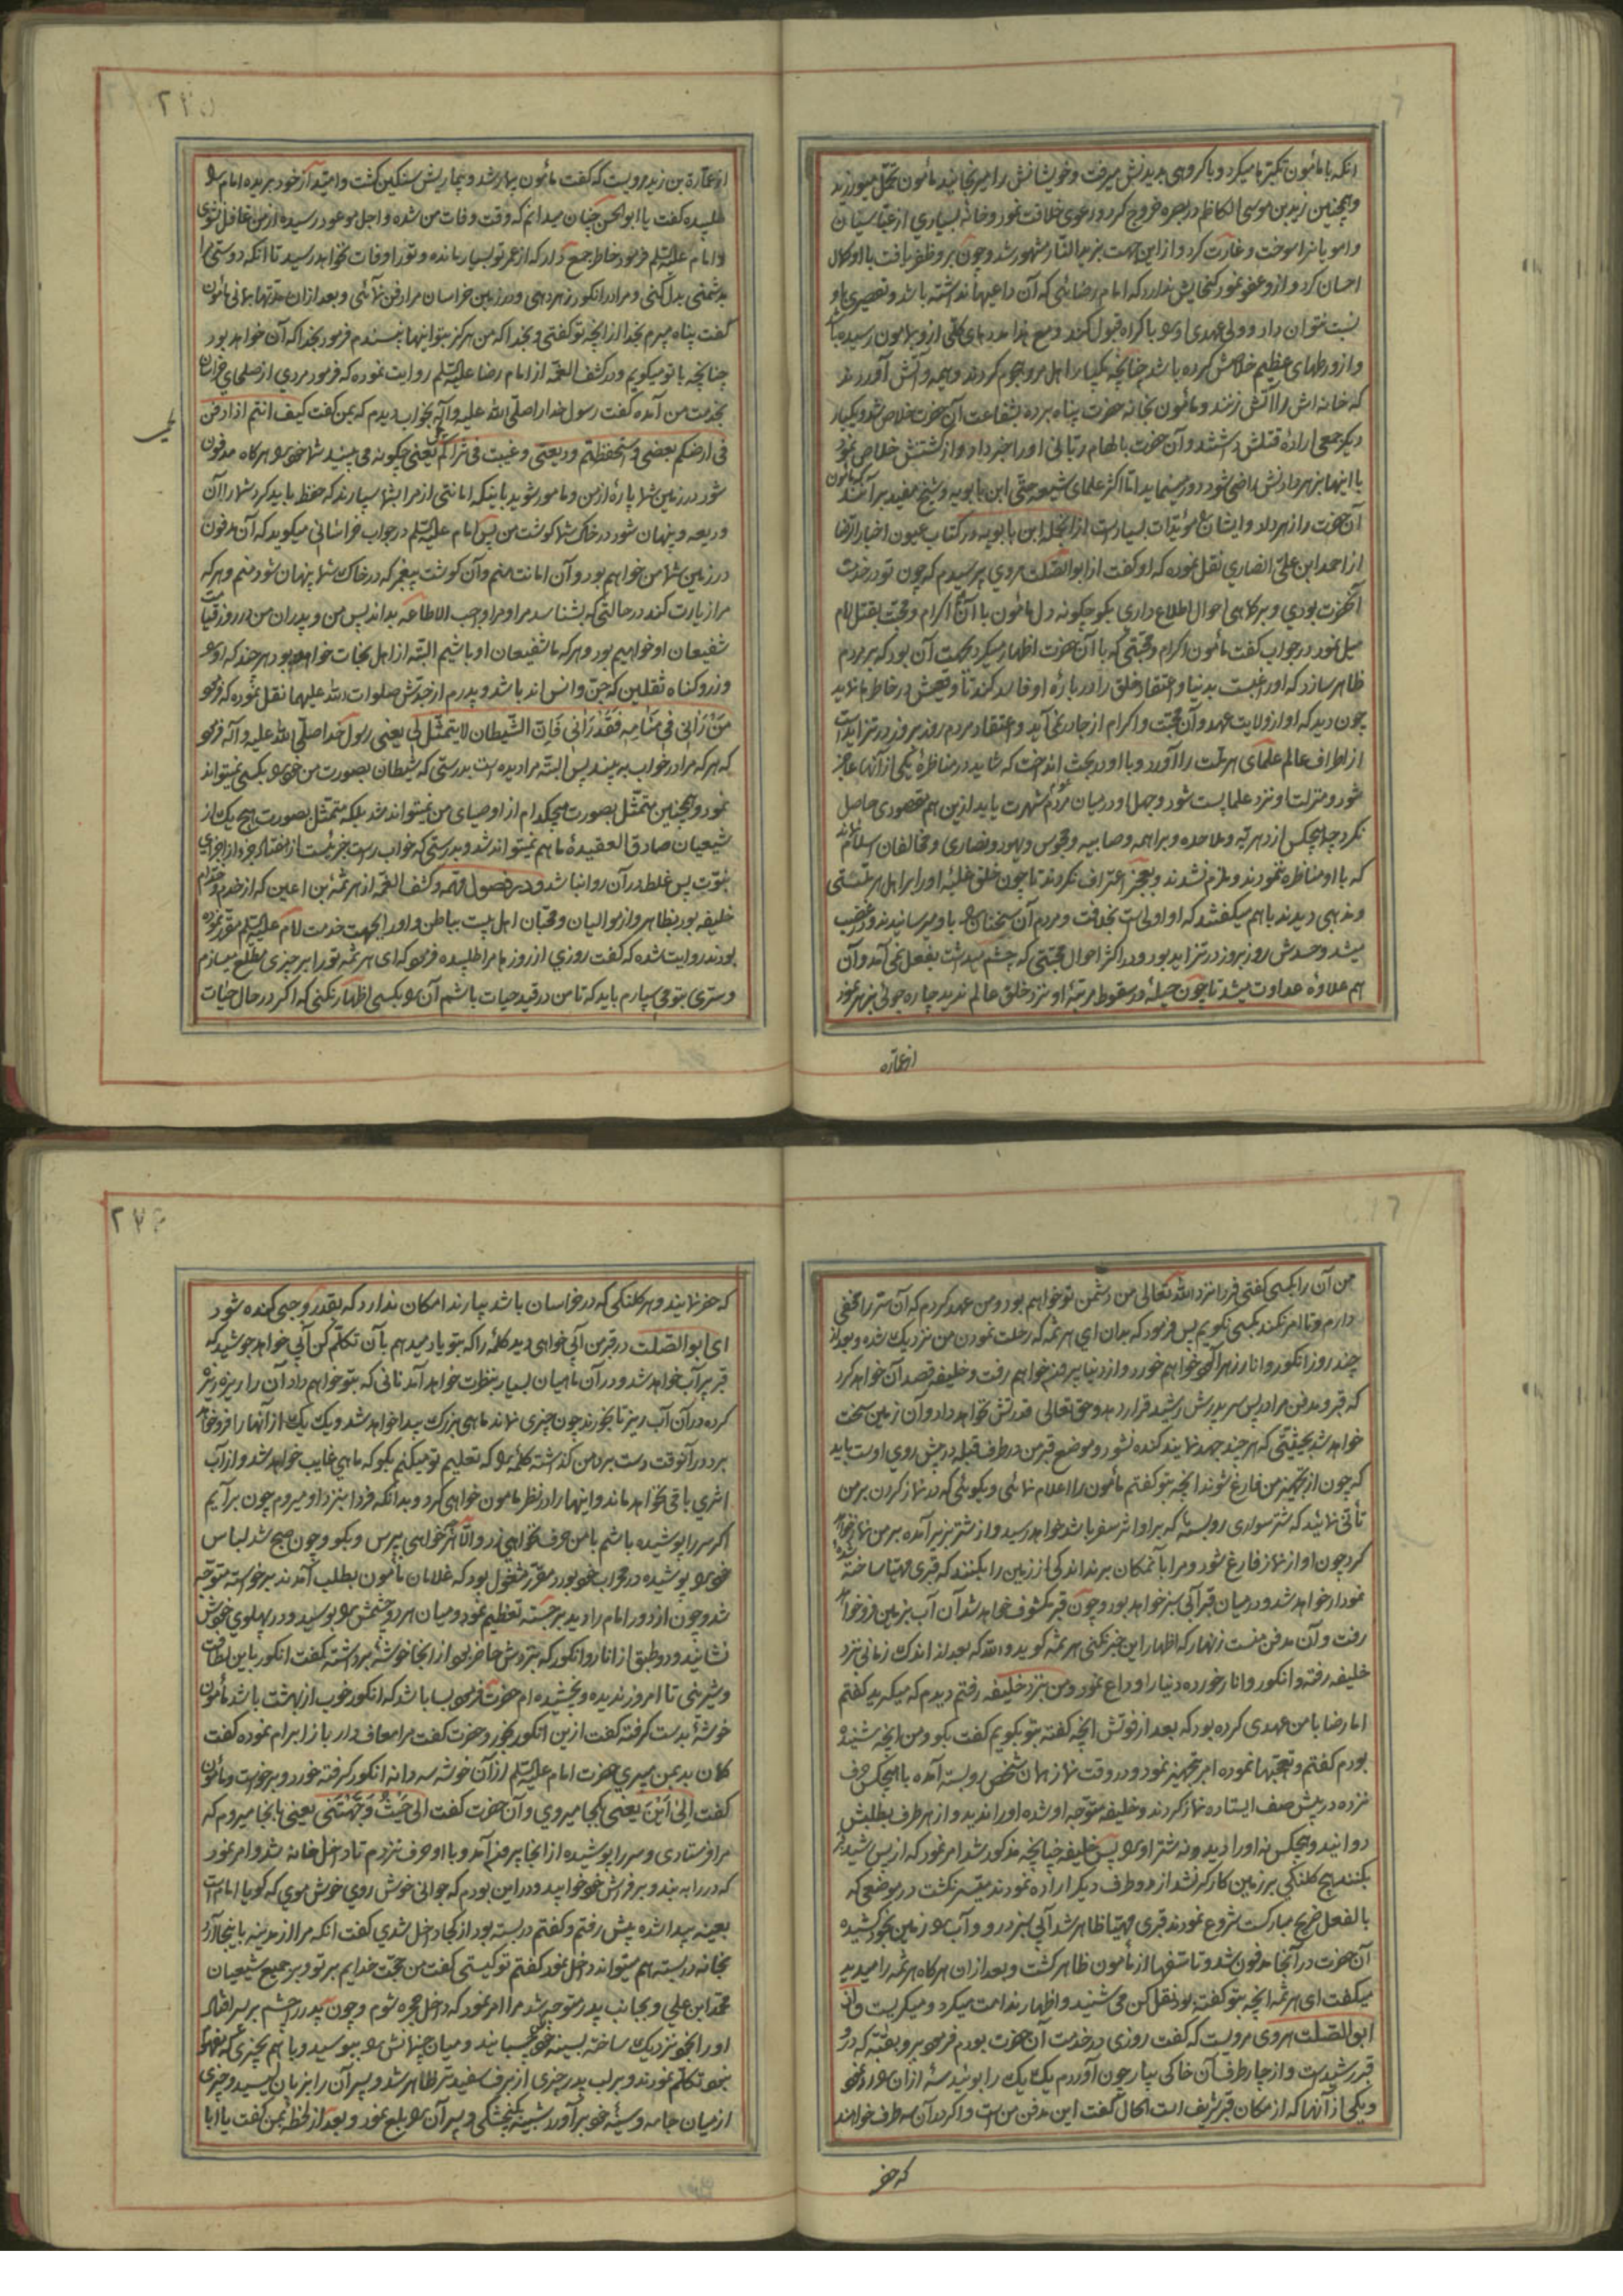 انکه با مأمون تکبّر میکرد و با کروهی بدیدنش میرفت و خویشانش را میرنجانید مأمون تحمّل میورزید
و همچنین زید بن موسی الکاظم در بصره خروج کرد و دعوی خلافت نمود و خانه بسیاری از عبّاسیان
را سوخت و غارت کرد و از این جهت بزید النّار مشهور شد و چون برو ظفر یافت با او کمال
احسان کرد و ازو عفو نمود کنجایش ندارد که امام رضایی که آن داعیها نداشته باشد و تقصیری باو
نسبت نتوان داد و ولی عهدی او را باکراه قبول کند
و از ورطهای عظیم خلاصش کرده باشد چنانچه یکبار اهل مرو هجوم کردند و هیمه و آتش آوردند
که خانه اش را آتش زنند و مأمون بخانه حضرت پناه برده بشفاعت آن حضرت خلاص شد و یکبار
دیکر جمعی اراده قتلش داشتند و آن حضرت بالهام ربّانی او را خبر داد و از کشتنش خلاص نمود
با اینها بزهر دادنش راضی شود دور مینماید امّا اکثر علمای شیعه حتّی ابن بابویه و شیخ مفید برآنند
آن حضرت را زهر داد و ایشان را مؤیّدات بسیار است از انجمله ابن بابویه در کتاب عیون اخبار الرّضا
از احمد ابن علیّ انصاری نقل نموده که او کفت از ابو الصّلت هروی پرسیدم که چون تو در خدمت
آنحضرت بودی و بر کماهی احوال اطلاع داری بکو چکونه دل مأمون با آن اکرام و محبّت بقتل امام
میل نمود در جواب کفت مأمون اکرام و محبّتی که با آن حضرت اظهار میکرد بجهت آن بود که بر مردم
ظاهر سازد که او را رغبت بدنیا و اعتقاد خلق را درباره او فاسد کند
چون دید که او از ولایت عهد و آن محبّت و اکرام از جا در نمی آید و اعتقاد مردم روز بروز در تزاید است
از اطراف عالم علمای هر ملّت را آورد و با او در بحث انداخت که شاید در مناظره یکی از آنها عاجز
شود و منزلت او نزد علما پست شود و جهل او در میان مردم شهرت یابد ازین هم مقصودی حاصل
نکرد چه هیچکس از دهریّه و ملاحده و براهمه و صابیه و مجوس و یهود و نصاری و مخالفان اسلام نماند
که با او مناظره ننمودند و ملزم نشدند و بعجز اعتراف نکردند تا چون خلق غلبه او را بر اهل هر ملّتی
و مذهبی دیدند باهم میکفتند که او اولی است بخلافت و مردم آن سخنان را باو میرسانیدند و در غضب
میشد و حسدش روز بروز در تزاید بود و در اکثر احوال محبّتی که چشم میداشت بفعل نمی آمد و آن
هم علاوه عداوت میشد تا چون حیله در سقوط مرتبه او نزد خلق عالم ندید چاره جوئی بزهر نمود
از عماره
از عمارة بن زید مرویست که کفت مأمون بیمار شد و بیماریش سنکین کشت و امّید از خود بریده امام را
طلبیده کفت یا ابو الحسن چنان میدانم که وقت وفات من شده و اجل موعود رسیده از من غافل نشوی
و امام علیه السّلم فرمود خاطر جمع دار که از عمر تو بسیار مانده و تو را وفات نخواهد رسید تا انکه دوستی را
بدشمنی بدل کنی و مرا در انکور زهر دهی و در زمین خراسان مرا دفن نمائی و بعد از ان مدّتها بمانی مأمون
کفت پناه میبرم بخدا از انچه تو کفتی و بخدا که من هرکز بتو اینها نپسندم فرمود بخدا که آن خواهد بود
چنانچه با تو میکویم و در کشف الغمّه از امام رضا علیه السّلم روایت نموده که فرمود مردی از صلحای خراسان
بخدمت من آمده کفت رسول خدا را صلّی الله علیه و آله بخواب دیدم که بمن کفت کیف انتم اذا دفن
فی ارضکم بعضی و استحفظتم ودیعتی و غیبت فی ثراکم یعنی چکونه می بینید شما خود را هرکاه مدفون
شود در زمین شما پاره از من و مامور شوید باینکه امانتی از مرا بشما سپارند که حفظ باید کرد شما را آن
ودیعه و پنهان شود در خاک شما کوشت من پس امام علیه السّلم در جواب خراسانی میکوید که آن مدفون
در زمین شما من خواهم بود و آن امانت منم و آن کوشت پیغمبر که در خاک شما پنهان شود منم و هر که
مرا زیارت کند در حالتی که بشناسد مرا و مرا واجب الاطاعه بداند پس من و پدران من در روز قیامت
شفیعان او خواهیم بود و هر که ما شفیعان او باشیم البتّه از اهل نجات خواهد بود هر چند که او را
وزر و کناه ثقلین که جنّ و انس اند باشد و پدرم از جدّش صلوات الله علیهما نقل نموده که فرمود
مَنْ رَاٰنی فی مَنامِه فَقَدْ رَاٰنی فَاِنّ الشّیطان لا یتمثّل بی یعنی رسول خدا صلّی الله علیه و آله فرمود
که هر که مرا در خواب به بیند پس البتّه مرا دیده است بدرستی که شیطان بصورت من خود را بکسی نمیتواند
نمود و همچنین متمثّل بصورت هیچکدام از اوصیای من نمیتواند شد بلکه متمثّل بصورت هیچ یک از
شیعیان صادق العقیده ما هم نمیتواند شد و بدرستی که خواب راست جزویست از هفتاد جزو از اجزای
نبوّت پس غلط در آن روا نباشد و در فصول مهمّه و کشف الغمّه از هرثمة بن اعین که از خدم و خدّام
خلیفه بود بظاهر و از موالیان و محبّان اهل بیت بباطن و او را بجهت خدمت امام علیه السّلم مقرّر نموده
بودند روایت شده که کفت روزی از روزها مرا طلبیده فرمود که ای هرثمه تو را بر چیزی مطّلع میسازم
و سرّی بتو می سپارم باید که تا من در قید حیات باشم آن را بکسی اظهار نکنی که اکر در حال حیات
۲۷۴
من آن را بکسی کفتی فردا نزد الله تعالی من دشمن تو خواهم بود و من عهد کردم که آن سرّ را مخفی
دارم و تا امر نکند بکسی نکویم پس فرمود که بدان ای هرثمه که رحلت نمودن من نزدیک شده و بعد از
چند روز انکور و انار زهر آلود خواهم خورد و از دنیا بیرون خواهم رفت و خلیفه قصد آن خواهد کرد
که قبر و مدفن مرا در پس سر پدرش رشید قرار دهد و حق تعالی قدرتش نخواهد داد و آن زمین سخت
خواهد شد بحیثیّتی که هر چند جهد نمایند کنده نشود و موضع قبر من در طرف قبله در پیش روی اوست باید
که چون از تجهیز من فارغ شوند انچه بتو کفتم مأمون را اعلام نمائی و بکوئی که در نماز کردن بر من
تأنّی نمائید که شتر سواری رو بسته که برو اثر سفر باشد خواهد رسید و از شتر بزیر آمده بر من نماز خواهد
کرد چون او از نماز فارغ شود و مرا بآنمکان برند اندکی از زمین را بکنند که قبری مهیّا ساخته
نمودار خواهد شد و در میان قبر آبی سبز خواهد بود و چون قبر مکشوف خواهد شد آن آب بزمین فرو خواهد
رفت و آن مدفن منست زنهار که اظهار این خبر نکنی هرثمه کوید والله که بعد از اندک زمانی نزد
خلیفه رفته و انکور و انار خورده دنیا را وداع نمود و من بنزد خلیفه رفتم دیدم که میکرید کفتم
امام رضا با من عهدی کرده بود که بعد از فوتش انچه کفته بتو بکویم کفت بکو و من انچه شنیده
بودم کفتم و تعجّبها نموده امر بتجهیز نمود و در وقت نماز همان شخص رو بسته آمده با هیچکس حرف
نزده در پیش صف ایستاده نماز کردند و خلیفه متوجّه او شده او را ندید و از هر طرف بطلبش
دوانید و هیچکس نه او را دید و نه شتر او را پس خلیفه چنانچه مذکور شد امر نمود که از پس رشید قبر
بکنند هیچ کلنکی بر زمین کارکر نشد از دو طرف دیکر اراده نمودند میسّر نکشت در موضعی که
بالفعل ضریح مبارکست شروع نمودند قبری مهیّا ظاهر شد آبی سبز در و آب را زمین بخود کشیده
آن حضرت در آنجا مدفون شد و تأسّفها از مأمون ظاهر کشت و بعد از ان هرکاه هرثمه را میدید
میکفت ای هرثمه انچه بتو کفته بود نقل کن می شنید و اظهار ندامت میکرد و میکریست و از
ابو الصّلت هروی مرویست که کفت روزی در خدمت آن حضرت بودم فرمود برو بقبّه که در و
قبر رشید است و از چار طرف آن خاکی بیار چون آوردم یک یک را بوئید سه ازان را رد نمود
و یکی از آنها که از مکان قبر شریف است کفت این مدفن من است و اکر در آن سه طرف خواهند
که حفر
که حفر نمایند و هر کلنکی که در خراسان باشد بیارند امکان ندارد که بقدر وجبی کنده شود
ای ابو الصّلت در قبر من آبی خواهی دید کلمه را که بتو یاد میدهم بآن تکلّم کن آبی خواهد جوشید که
قبر پر آب خواهد شد و در آن ماهیان بسیار بنظرت خواهد آمد نانی که بتو خواهم داد آن را ریزه ریزه
کرده در آن آب ریز تا بخورند چون چیزی نماند ماهی بزرک پیدا خواهد شد و یک یک از آنها را فرو خواهد
برد در آنوقت دست بر دهن کذاشته کلمه را که تعلیم تو میکنم بکو که ماهی غایب خواهد شد و از آب
اثری باقی نخواهد ماند و اینها را در نظر مأمون خواهی کرد و بدانکه فردا بنزد او میروم چون برآیم
اکر سر را پوشیده باشم با من حرف نخواهی زد و الّا هر چه خواهی بپرس و بکو و چون صبح شد لباس
خود را پوشیده در محراب خود مشغول بود که غلامان مأمون بطلب آمدند برخواسته متوجّه
شد و چون از دور امام را دید برجسته تعظیم نمود و میان هر دو چشمش را بوسید و در پهلوی خودش
نشانید و دو طبق از انار و انکور که بنزدش حاضر بود از انجا خوشه برداشته کفت انکور باین لطافت
و شیرینی تا امروز ندیده و نچشیده ام حضرت فرمود بسا باشد که انکور خوب از بهشت باشد مأمون
خوشه بدست کرفته کفت از ین انکور بخور و حضرت کفت مرا معاف دار باز ابرام نموده کفت
کمان بد بمن میبری حضرت امام علیه السّلم از آن خوشه سه دانه انکور کرفته خورد و برخواست و مأمون
کفت اِلیٰ اَیْنَ یعنی بکجا میروی و آن حضرت کفت الی حَیْثُ وَجَّهْتَنی یعنی بانجا میروم که
مرا فرستادی و سر را پوشیده از انجا بیرون آمد و با او حرف نزدم تا داخل خانه شد و امر نمود
که در را به بند و بر فراش خود خوابید و در این بودم که جوانی خوش روی خوش موی که کویا امام است
بعینه پیدا شده پیش رفتم و کفتم در بسته بود از کجا داخل شدی کفت انکه مرا از مدینه باینجا آورد
بخانه در بسته هم میتواند داخل نمود کفتم تو کیستی کفت من حجّت خدایم بر تو و بر جمیع شیعیان
محمّد ابن علی و بجانب پدر متوجّه شد مرا امر نمود که داخل حجره شوم و چون پدر را چشم بر پسر افتاد
او را بخود نزدیک ساخته بسینه خود چسبانید و میان چشمانش را ببوسید و باهم بچیزی که نفهمیدم
تکلّم نمودند و بر لب پدر چیزی از برف سفیدتر ظاهر شد و پسر آن را بزبان لیسید و چیزی
از میان جامه و سینه خود برآورد شبیه بکنجشکی و پسر آن را بلع نمود و بعد از لحظه بمن کفت یا ابا